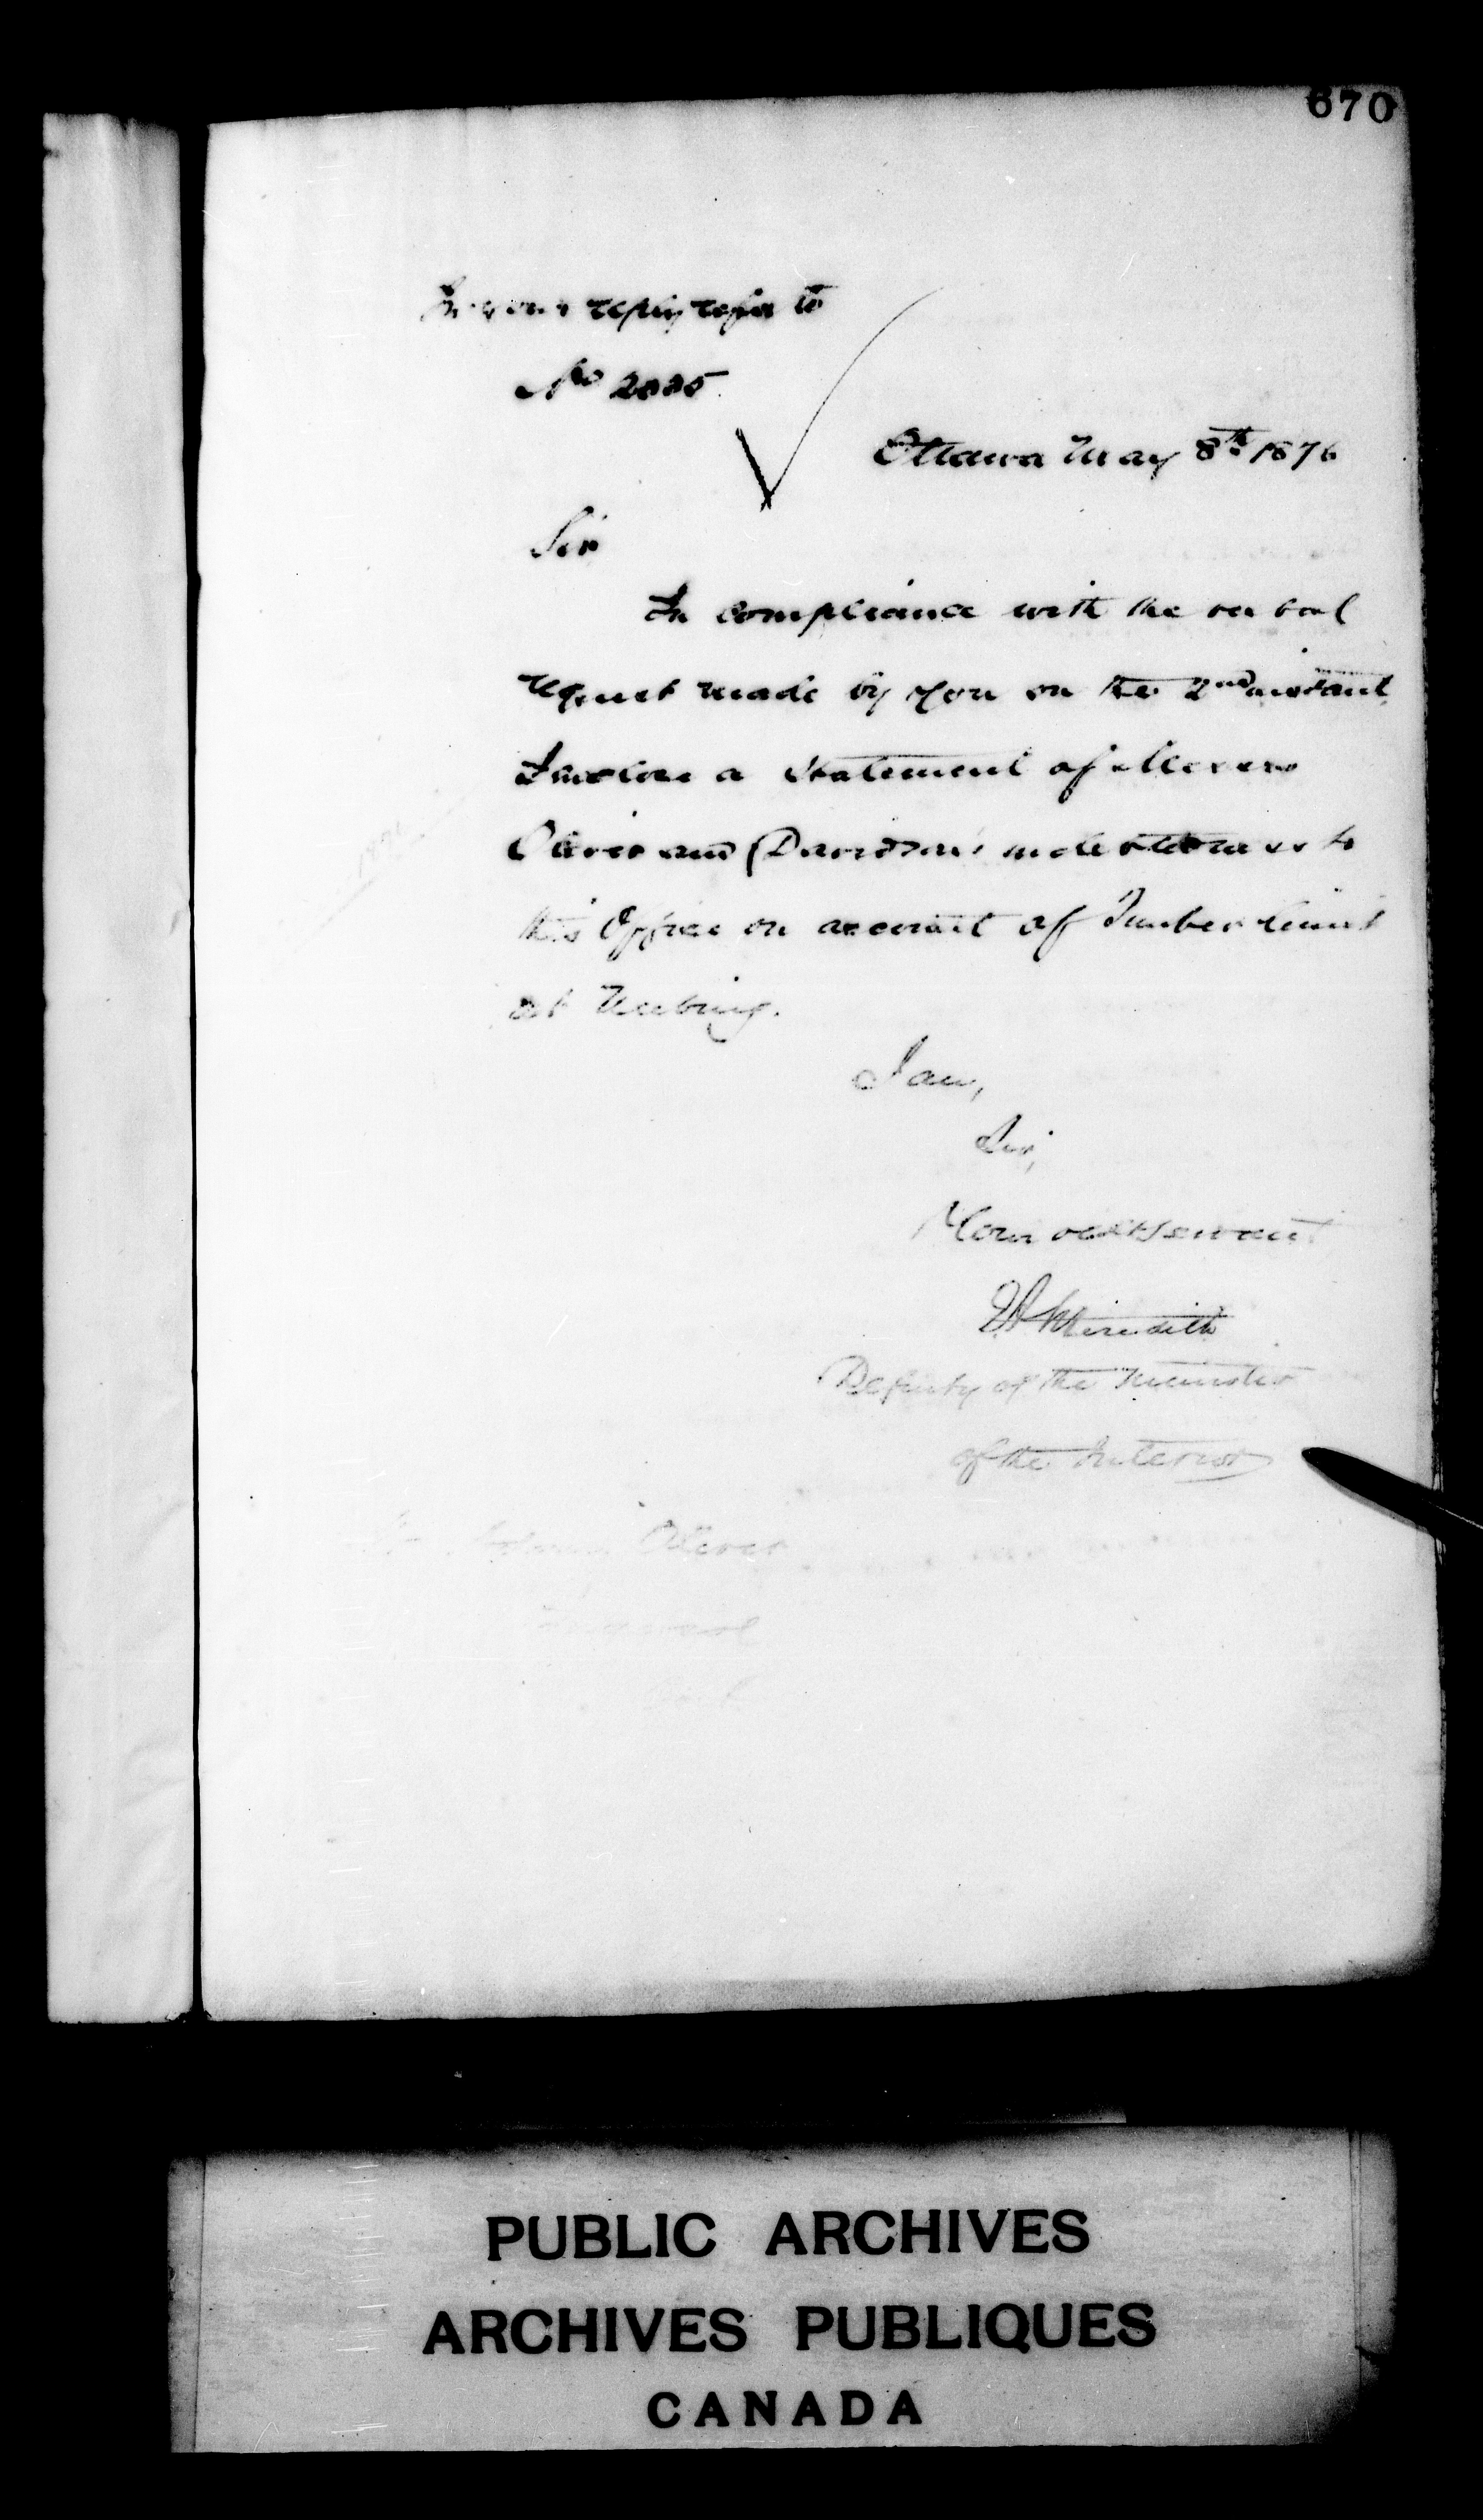 670
In your reply refer to
No 2085
Ottawa May 8th 1876
Sir
In compliance with the verbal
request made by you on the 2nd instant
I enclose a Statement of Messrs
Oliver and Davidson's indebtedness to
this Office on account of Timber limit
at Neebing.
I am,
Sir,
Your obedt Servant
Meredith
Deputy of the Minister
of the Interior
Adam Oliver
PUBLIC ARCHIVES
ARCHIVES PUBLIQUES
CANADA